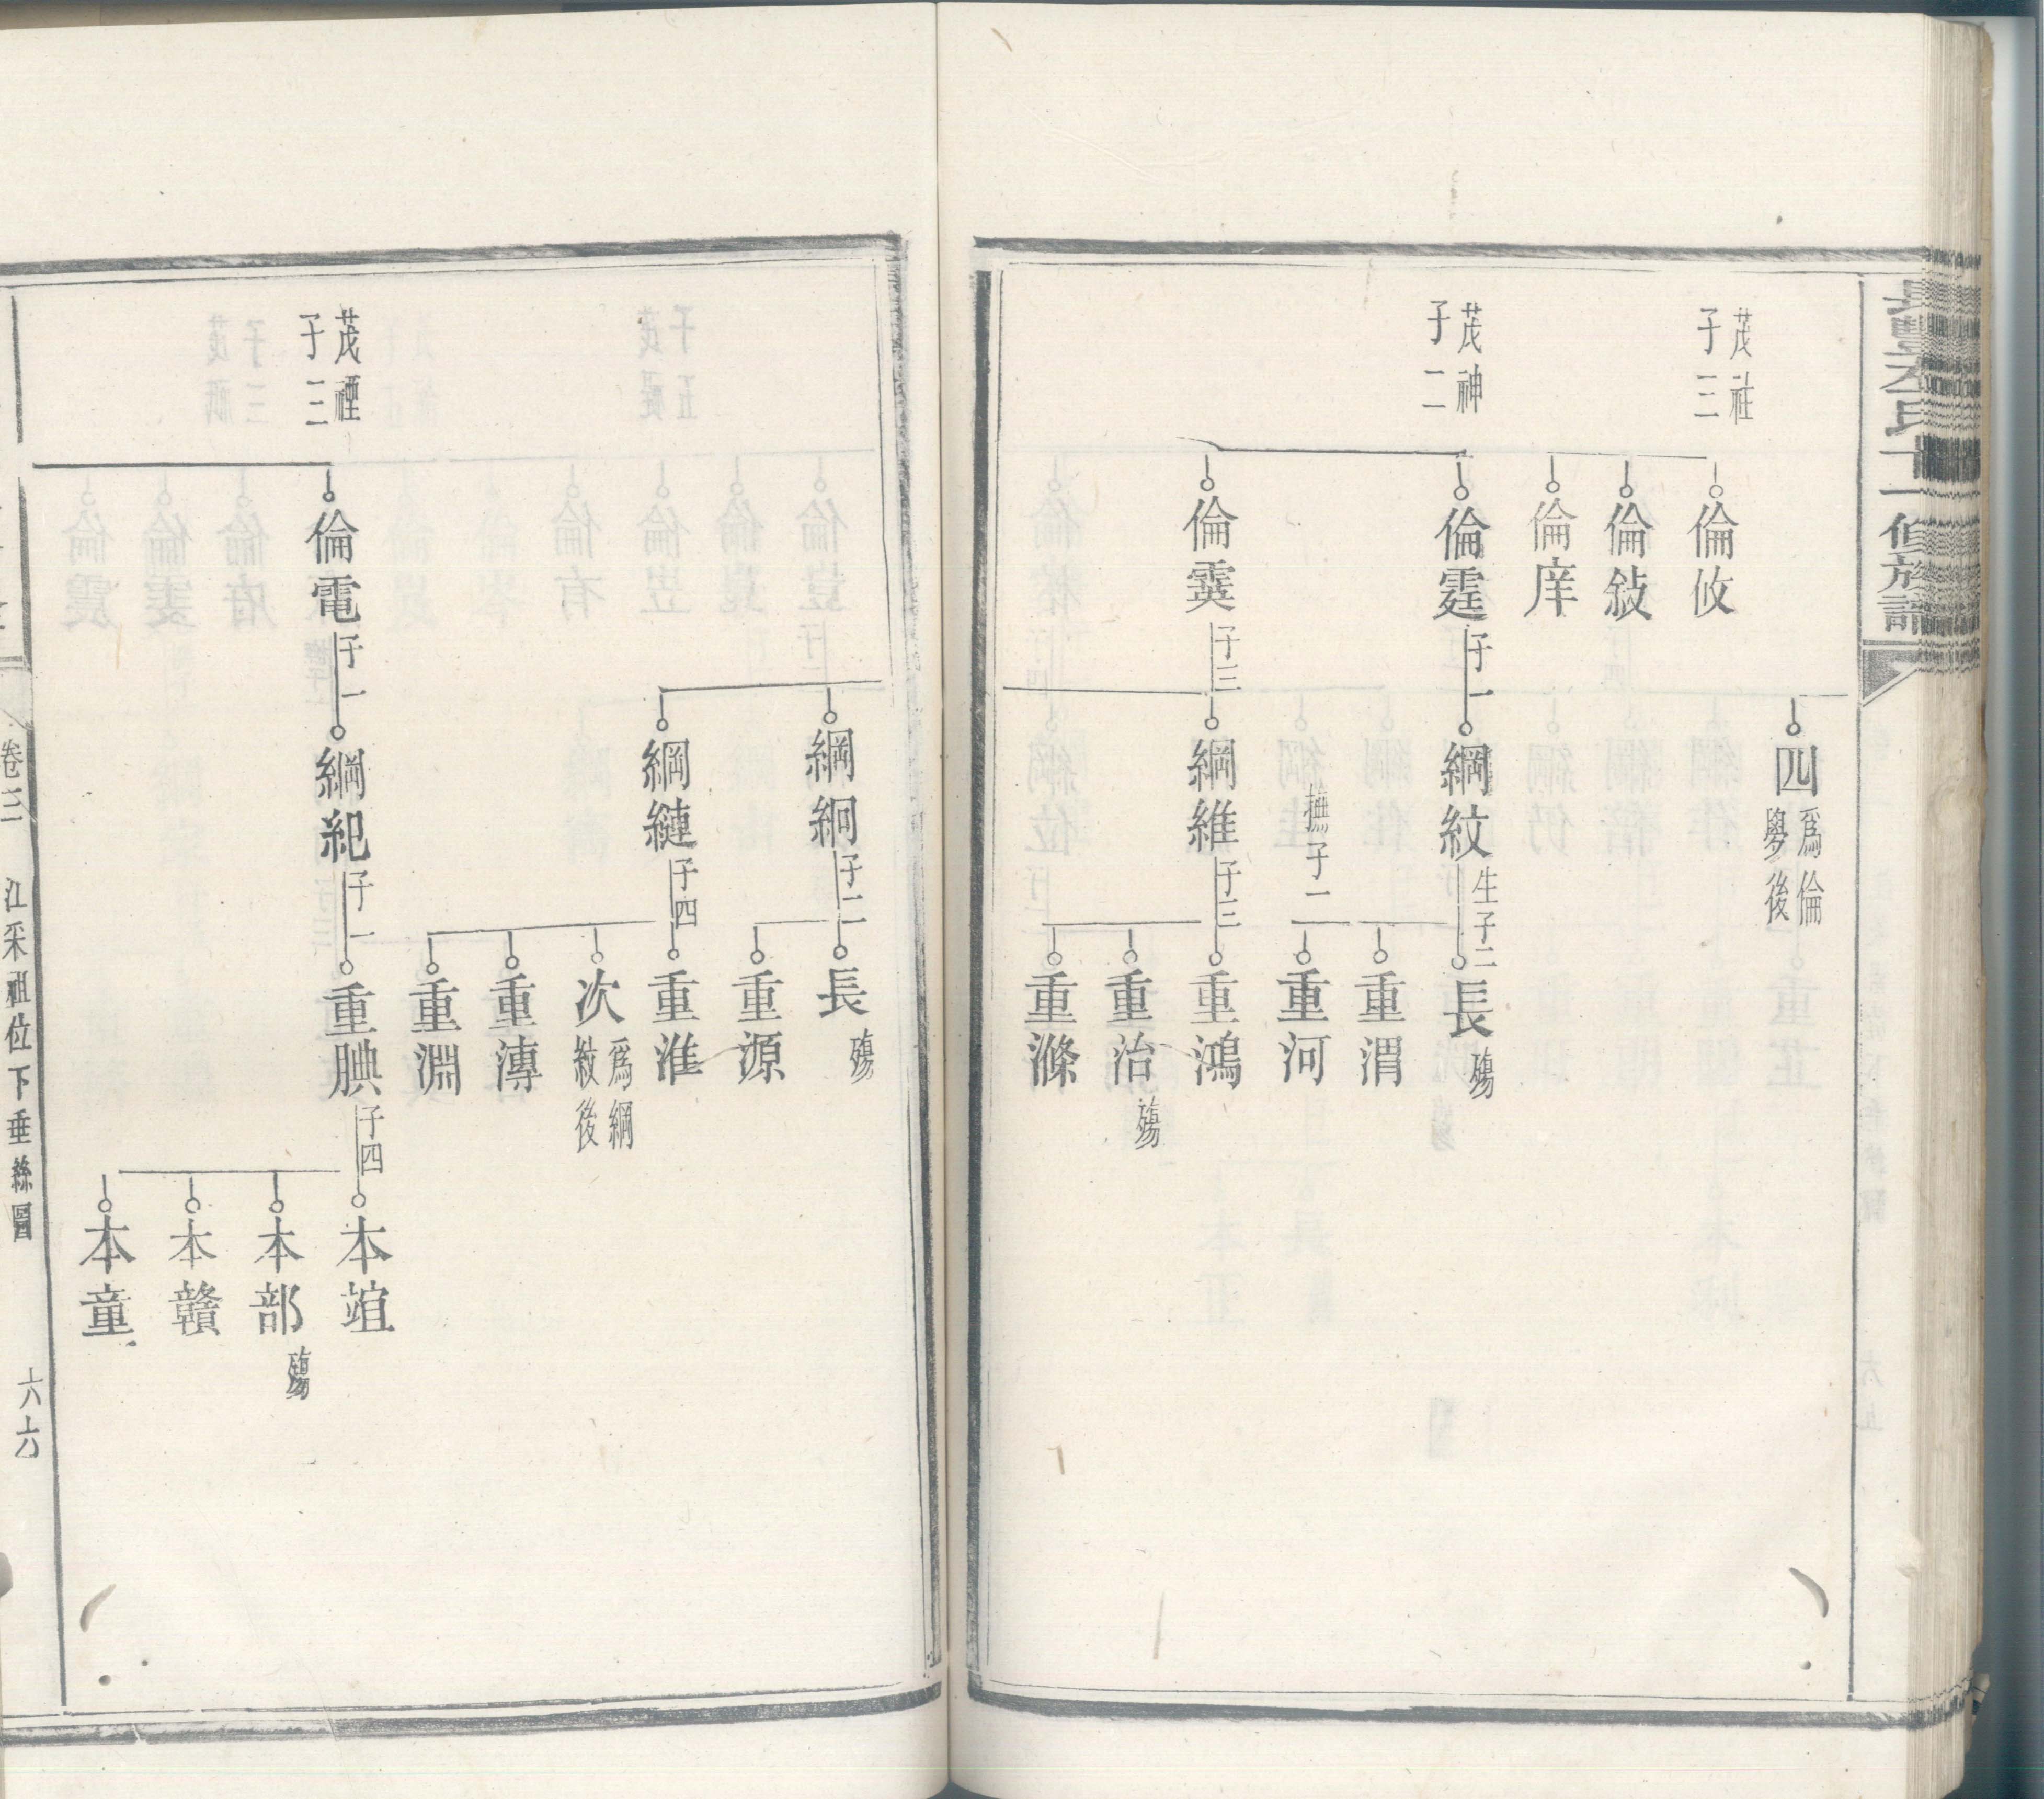 氏十一修族譜
四
爲倫
後
茂祉
子三
倫攸
倫敍
倫庠
茂神
子二
倫霆
子一
綱紋
生子二
長
殤
重渭
撫子二
重河
倫霙
子三
綱維
子三
重鴻
重治
殤
重滌
綱絅
子二
長
殤
重源
綱縺
子四
重淮
次
爲綱
紋後
重漙
重淵
茂禋
子三
倫電
子一
綱紀
子一
重腆
子四
本竩
本部
殤
本贛
本童
卷三
江采祖位下垂絲圖
六六